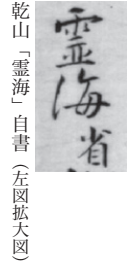 霊海省
乾山「霊海」自書(左図拡大図)